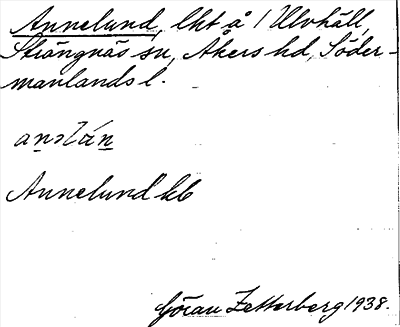 Annelund, lht å 1 Ulvhäll,
Strängnäs sn, Åkers hd, Söder-
manlands l.
Annelund kb
Göran Zetterberg 1938.